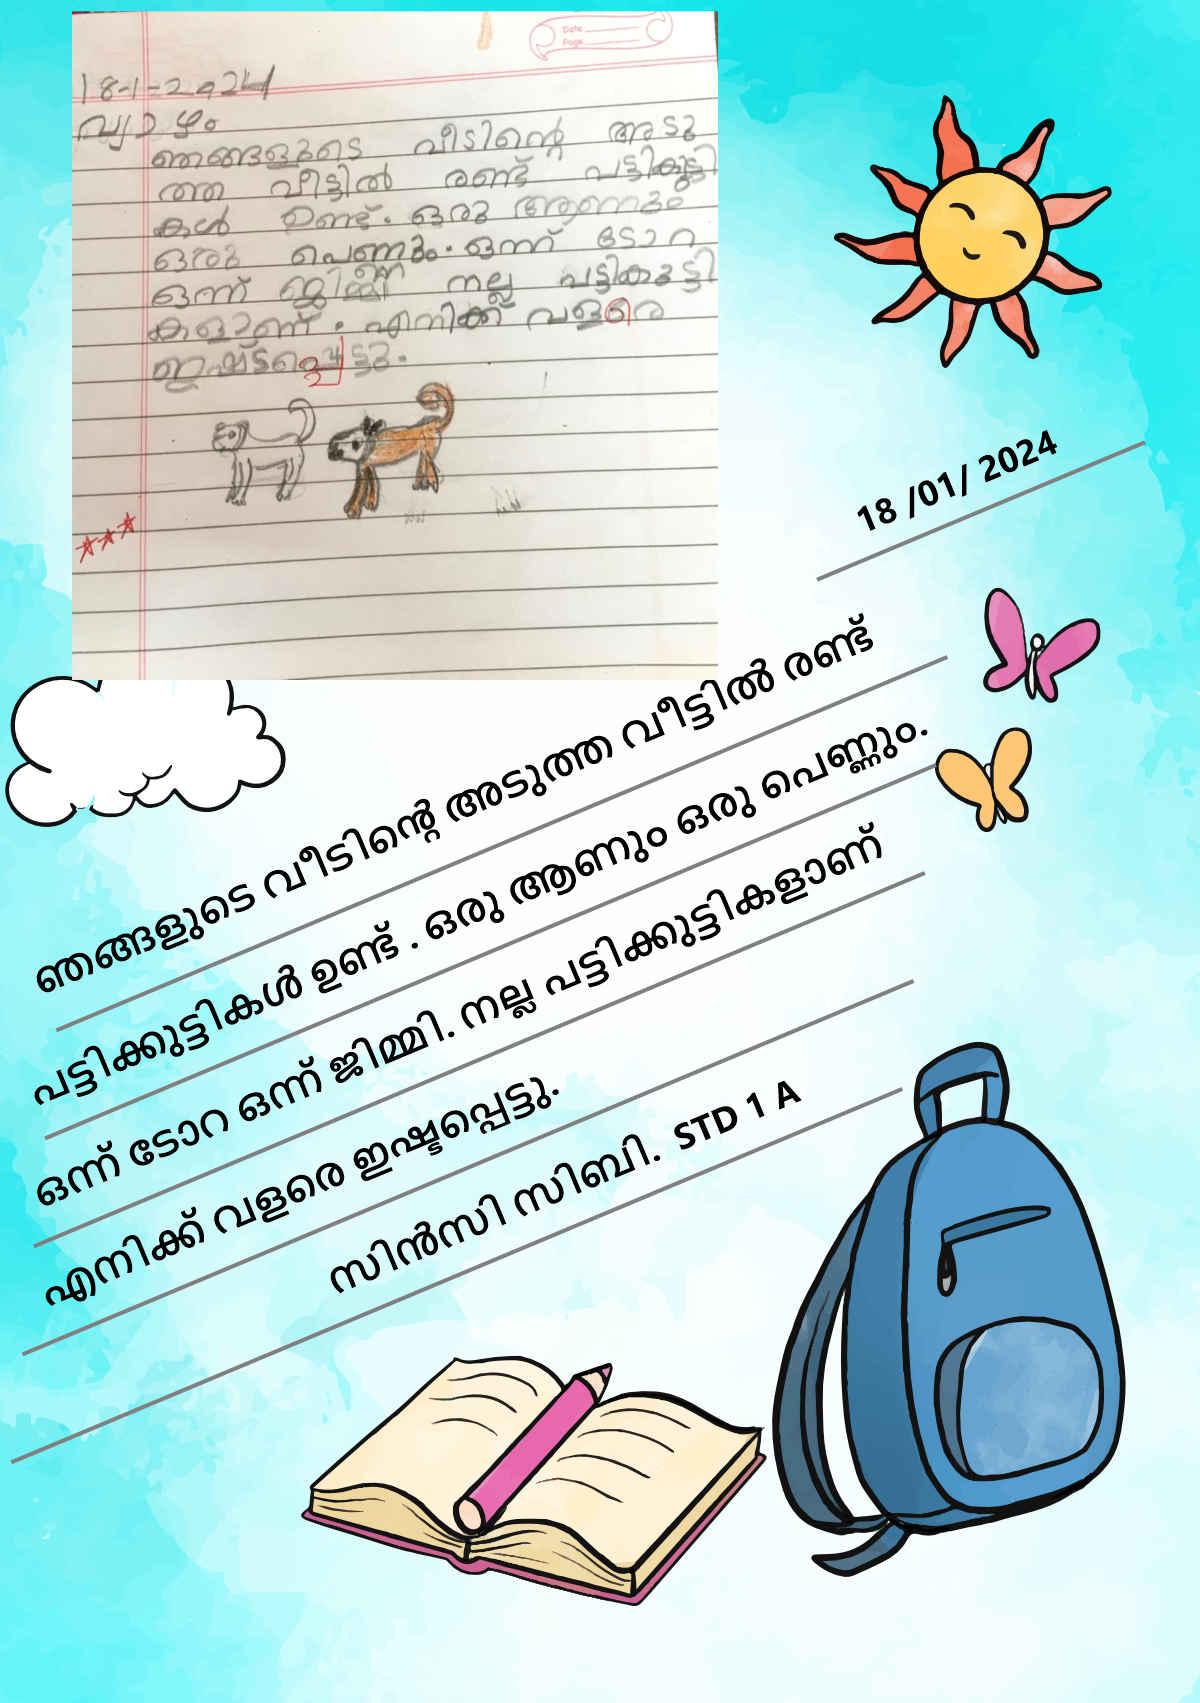 Date
Page
18-1-2024
വ്യാഴം
ഞങ്ങളുടെ വീടിന്റെ അടു
ത്ത വീട്ടിൽ രണ്ട് പട്ടികുട്ടി
കൾ ഉണ്ട്. ഒരു ആണും
ഒരു പെണ്ണും. ഒന്ന് ടോറ
ഒന്ന് ജിമ്മി നല്ല പട്ടികുട്ടി
കളാണ്. എനിക്ക് വളരെ
ഇഷ്ട്ടപ്പെട്ടു.
18 /01/ 2024
ഞങ്ങളുടെ വീടിന്റെ അടുത്ത വീട്ടിൽ രണ്ട്
പട്ടിക്കുട്ടികൾ ഉണ്ട് . ഒരു ആണും ഒരു പെണ്ണും.
ഒന്ന് ടോറ ഒന്ന് ജിമ്മി. നല്ല പട്ടിക്കുട്ടികളാണ്
എനിക്ക് വളരെ ഇഷ്ടപ്പെട്ടു.
സിൻസി സിബി. STD 1 A